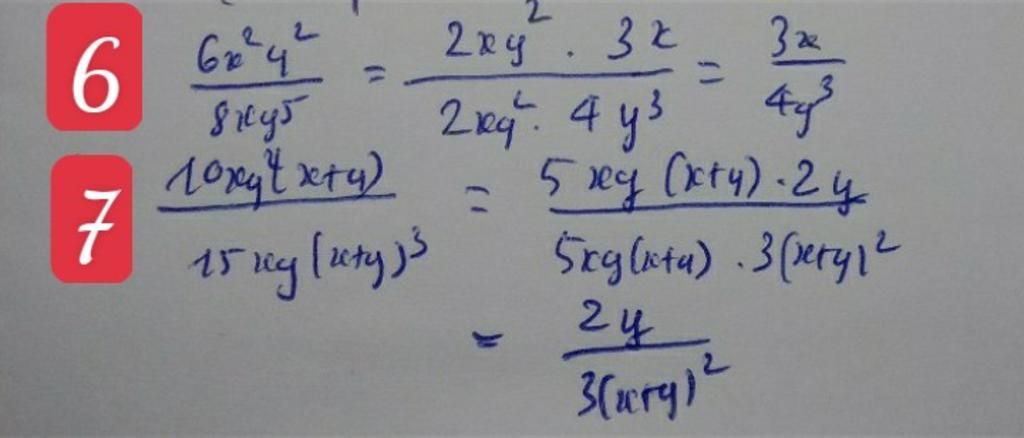 6 6x²y²/8xy⁵ = 2xy² · 3x/2xy² · 4y³ = 3x/4y³
7 10xy⁴(x+y)/15xy(x+y)³ = 5xy(x+y) · 2y/5xy(x+y) · 3(x+y)²
= 2y/3(x+y)²